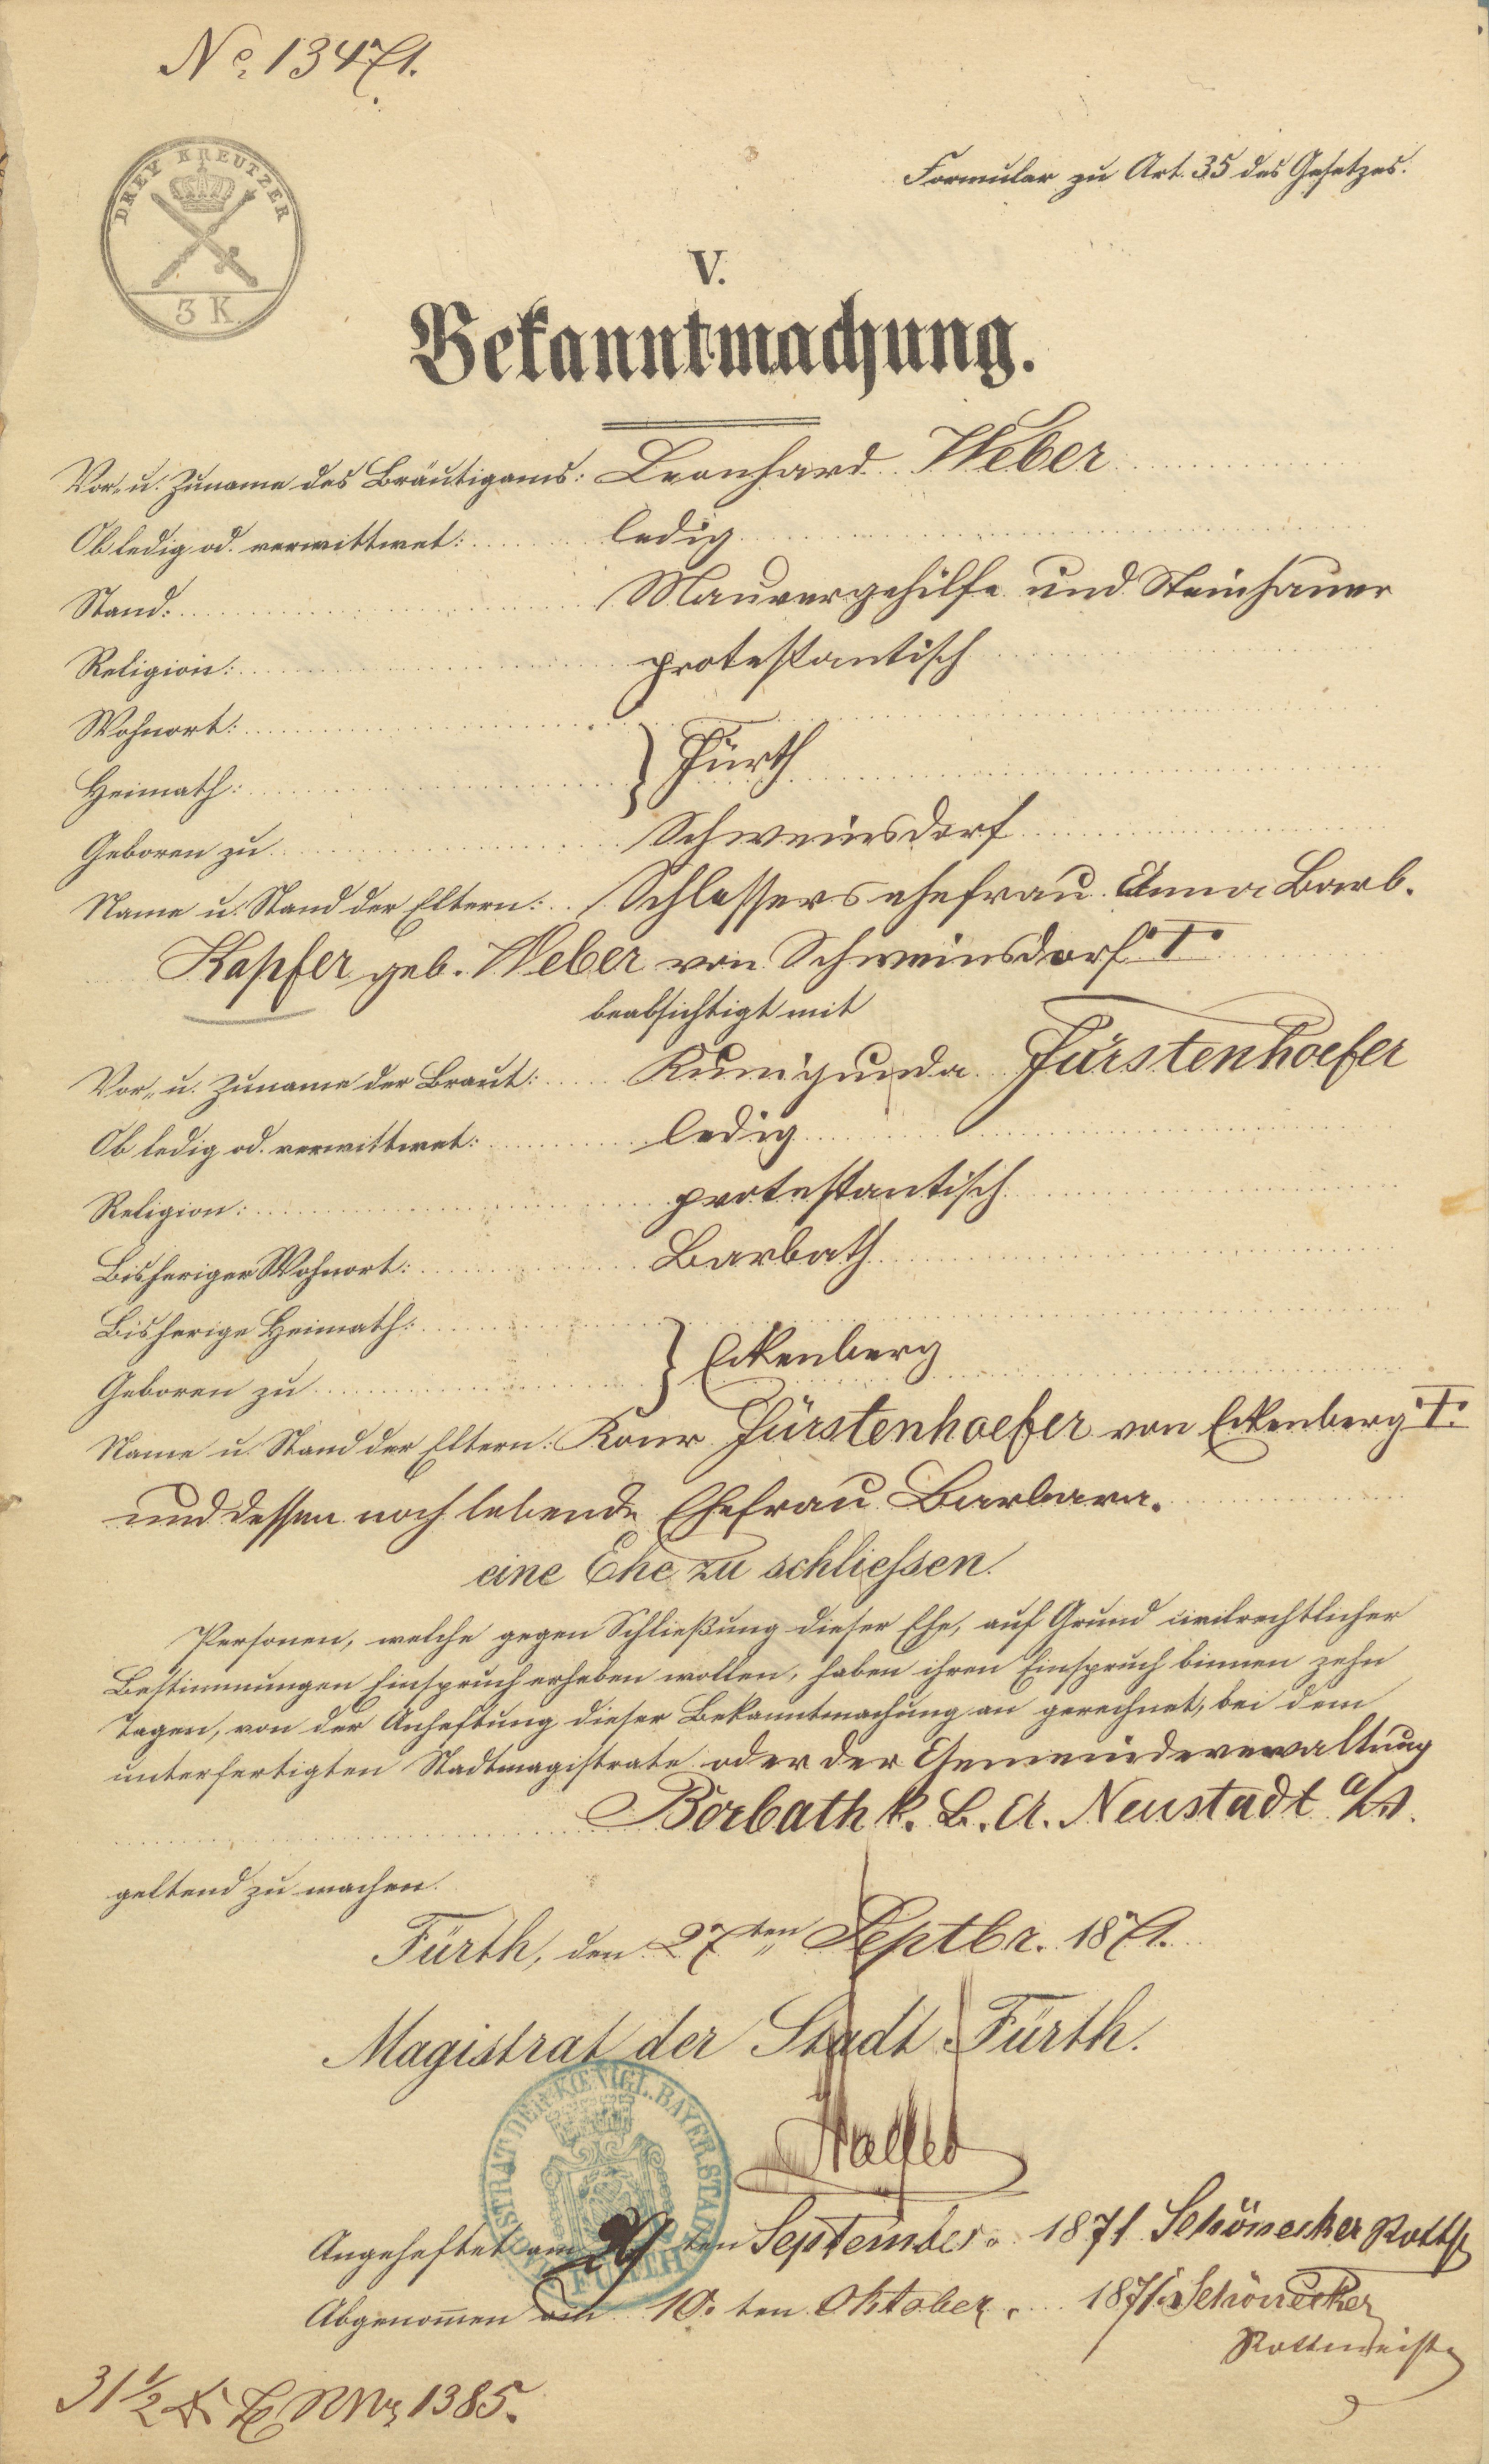 No. 13471.
DREY KREUTZER
3 K.
Formular zu Art. 35 des Gesetzes.
V.
Bekanntmachung.
Vor- u. Zuname des Bräutigams: Leonhard Weber
Ob ledig od. verwittwet: ledig
Stand: Maurergehilfe und Steinhauer
Religion: protestantisch
Wohnort:
Heimath: } Fürth
Geboren zu Schweinsdorf
Name u. Stand der Eltern: Schlossersehefrau Anna Barb.
Kapfer geb. Weber von Schweinsdorf †
beabsichtigt mit
Vor- u. Zuname der Braut: Kunigunda Fürstenhoefer
Ob ledig od. verwittwet: ledig
Religion: protestantisch
Bisheriger Wohnort: Barbath
Bisherige Heimath:
Geboren zu } Eckenberg
Name u. Stand der Eltern: Konr Fürstenhoefer von Eckenberg †
und dessen noch lebende Ehefrau Barbara.
eine Ehe zu schliessen.
Personen, welche gegen Schließung dieser Ehe, auf Grund civilrechtlicher
Bestimmungen Einspruch erheben wollen, haben ihren Einspruch binnen zehn
Tagen, von der Anheftung dieser Bekanntmachung an gerechnet, bei dem
unterfertigten Stadtmagistrate oder der Gemeindeverwaltung
Borbath k. B. A. Neustadt a/A.
geltend zu machen.
Fürth, den 27ten Septbr. 1871.
Magistrat der Stadt Fürth.
MAGISTRAT DER KŒNIGL. BAYER. STADT FÜRTH
Angeheftet am 29 ten September 1871 Schönecker Rottm
Abgenommen am 10. ten Oktober 1871. Schönecker
Rottmeister
31 1/2 x RNr 1385.